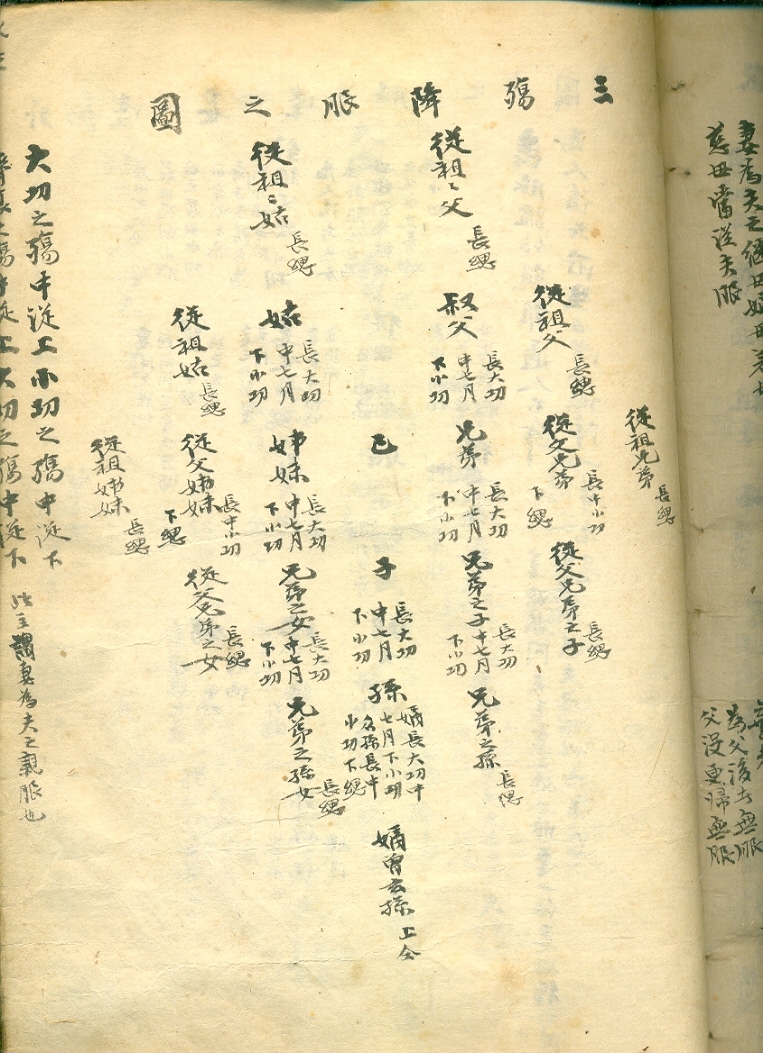 三殤降服之圖
從祖〻父 長緦
從祖〻姑 長緦
從祖父 長緦
叔父 長大功 中七月 下小功
姑 長大功 中七月 下小功
從祖姑 長緦
從祖兄弟 長緦
從父兄弟 長中小功 下緦
兄弟 長大功 中七月 下小功
己
姊妹 長大功 中七月 下小功
從父姊妹 長中小功 下緦
從祖姊妹 長緦
從父兄弟之子 長緦
兄弟之子 長大功 中七月 下小功
子 長大功 中七月 下小功
兄弟之女 長大功 中七月 下小功
從父兄弟之女 長緦
兄弟之孫 長緦
孫 嫡長大功中七月下小功 中小功下緦
兄弟之孫女 長緦
嫡曾玄孫 上仝
大功之殤中從上小功之殤中從下
之殤中從上大功之殤中從下 此主謂妻為夫之親服也
妻為夫之繼母嫡母
慈母當從夫服
為父後者無服
父沒更歸無服